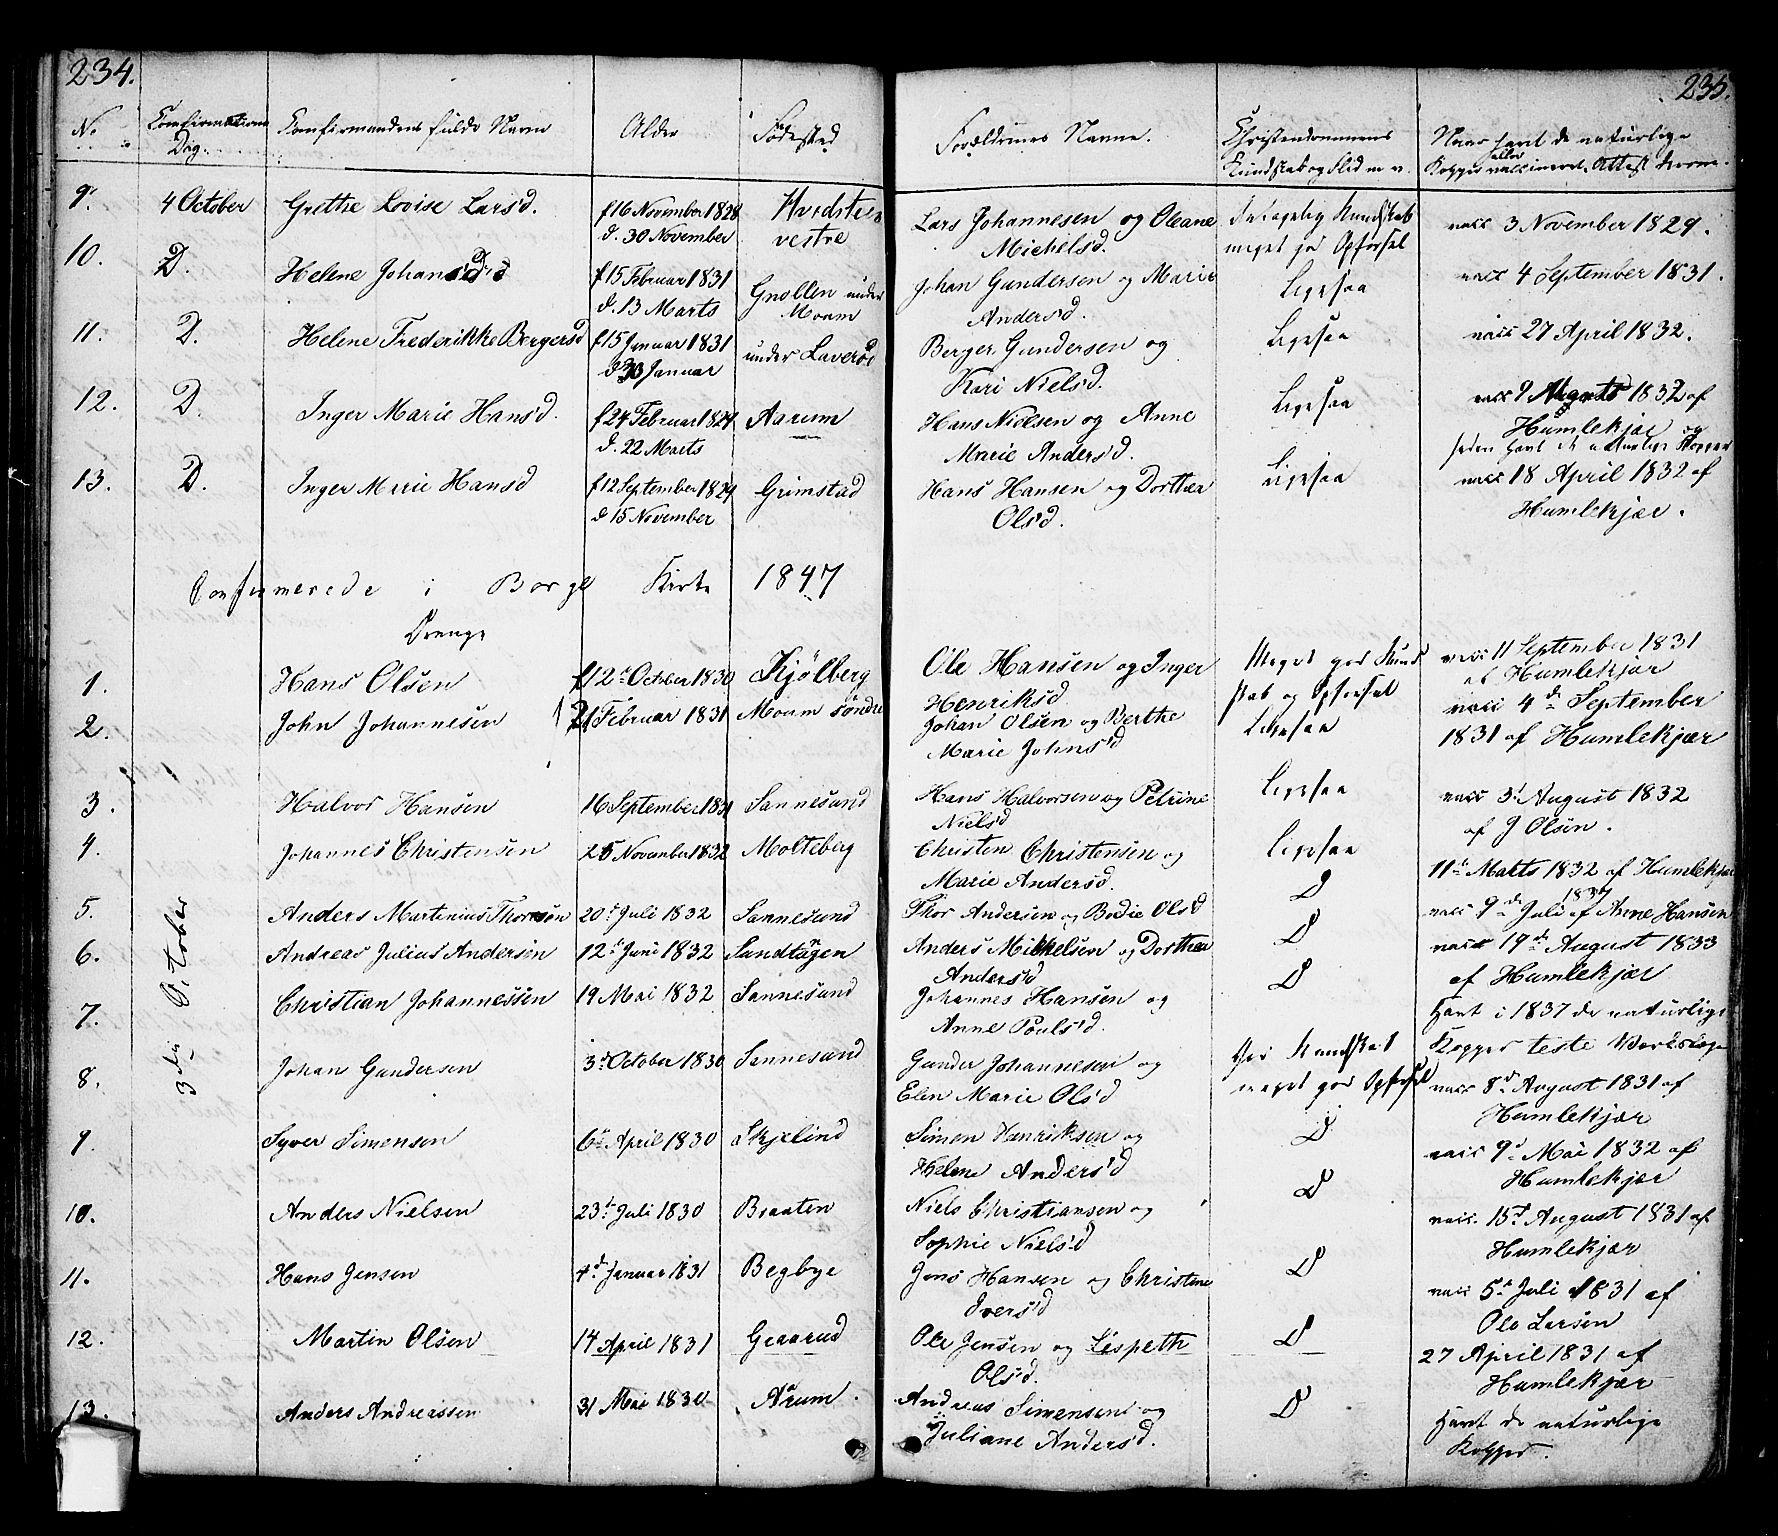 234.
235.
No. Confirmations Dag. Confirmandens fulde Navn Alder Fødested Forældrenes Navne. Christendommens Kundskab og Flid m. v. Naar havt de naturlige Kopper eller vaccineret. Attest herom.
9. 4 October Grethe Lovise Larsd. f 16 November 1828 d. 30 November Hvidsten vestre Lars Johannesen og Oleane Michelsd. Kundskab meget god Opførsel vacc 3 November 1829.
10. D. Helene Johansd f 15 Februar 1831 d. 13 Marts Gnollen under Moum Johan Gundersen og Marie Andersd. Ligesaa vacc 4 September 1831.
11. D. Helene Frederikke Bergersd f 15 Januar 1831 d 30 Januar under Laverød Berger Gundersen og Kari Nielsd. Ligesaa vacc 27 April 1832.
12. D. Inger Marie Hansd. f 24 Februar 1829 d. 22 Marts Aarum Hans Nielsen og Anne Marie Andersd. Ligesaa vacc 9 1832 af Humlekjær og siden havt de naturlige Kopper
13. D. Inger Marie Hansd f 12 September 1829 d 15 November Grimstad Hans Hansen og Dorthea Olsd. Ligesaa vacc 18 April 1832 af Humlekjær.
Confirmerede i Borge Kirke 1847
Drenge
3die October
1. Hans Olsen f 12te October 1830 Kjølberg Ole Hansen og Inger Henriksd Meget god Kundskab og Opførsel vacc 11 September 1831 af Humlekjær
2. John Johannesen 21 Februar 1831 Moum søndre Johan Olsen og Berthe Marie Johnsd Ligesaa vacc 4de September 1831 af Humlekjær
3. Halvor Hansen 16 September 1831 Sannesund Hans Halvorsen og Petrine Nielsd Ligesaa vacc 3d August 1832 af J Olsen.
4. Johannes Christensen 25 November 1832 Molteberg Christen Christensen og Marie Andersd. Ligesaa 11te Marts 1832 af Humlekjær
5. Anders Martinius Thorsen 20d Juli 1832 Sannesund Thor Andersen og Bodie Olsd D vacc 9de Juli 1837 af Arne Hansen
6. Andreas Julius Andersen 12te Juni 1832 Sandtagen Anders Mikkelsen og Dorthea Andersd D vacc 19de August 1833 af Humlekjær
7. Christian Johannessen 19 Mai 1832 Sannesund Johannes Hansen og Anne Poulsd. D Havt i 1837 de naturlige Kopper teste
8. Johan Gundersen 3d October 1830 Sannesund Gunder Johannesen og Elen Marie Olsd God Kundskab meget god Opførsel vacc 8de August 1831 af Humlekjær
9. Syver Simensen 6te April 1830 Skjelind Simen Henriksen og Helene Andersd D vacc 9d Mai 1832 af Humlekjær
10. Anders Nielsen 23de Juli 1830 Braaten Niels Christiansen og Sophie Nielsd D vacc. 15d August 1831 af Humlekjær
11. Hans Jensen 4d Januar 1831 Begbye Jens Hansen og Christine Iversd D vacc 5te Juli 1831 af Ole Larsen
12. Martin Olsen 14 April 1831 Graarud Ole Jensen og Lispeth Olsd. D 27 April 1831 af Humlekjær
13. Anders Andreassen 31 Mai 1830 Årum. Andreas Simensen og Juliane Andersd. D Havt de naturlige Kopper.